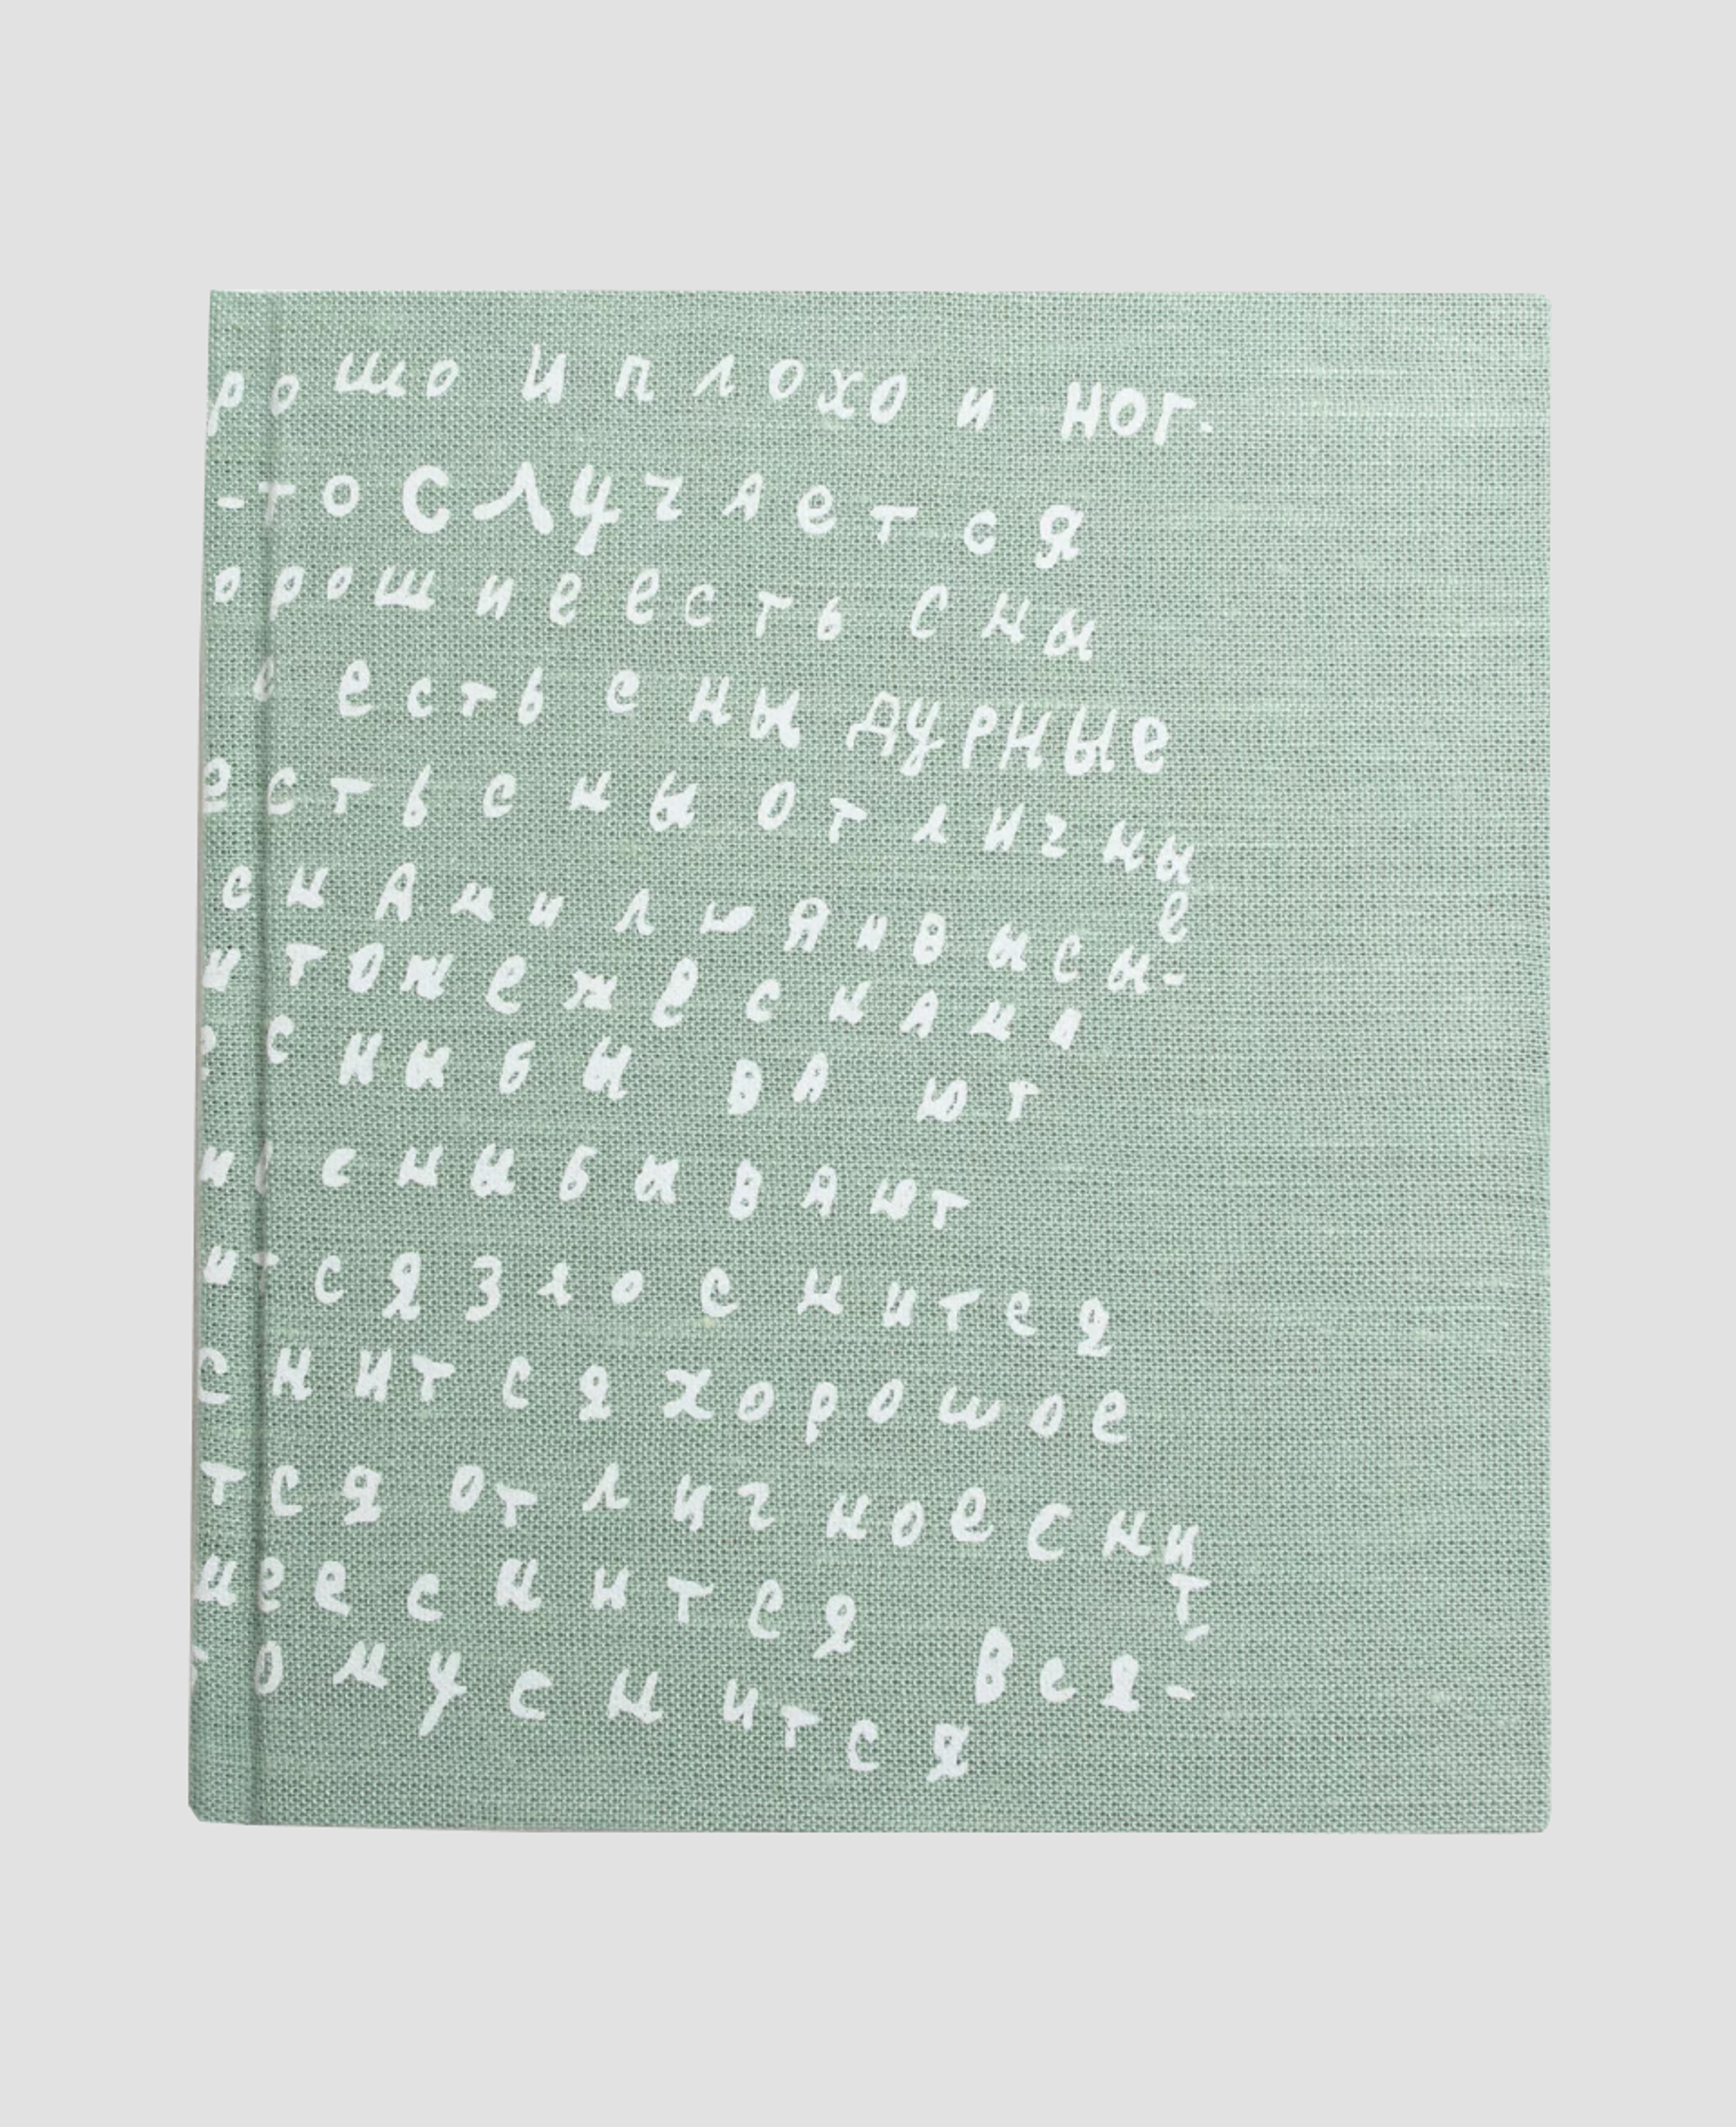 рошо и плохо и ног-
-то случается
орошие есть сны
есть сны дурные
есть сны отличные
снами люянвысы-
и тоже же снама
сныбы ва ют
и сныбывают
и-ся зло снится
снится хорошое
тся отличное снит-
мее снится вся-
ому снится